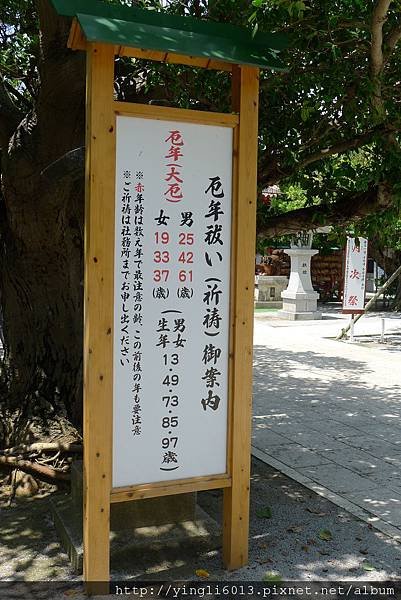 厄年祓い(祈祷)御案内
厄年(大厄)
男 25 42 61(歳)
女 19 33 37(歳)
(男女生年 13・49・73・85・97歳)
※赤年齢は数え年で最注意の齢、この前後の年も要注意
※ご祈祷は社務所までお申し出ください
月次祭
http://yingli6013.pixnet.net/album